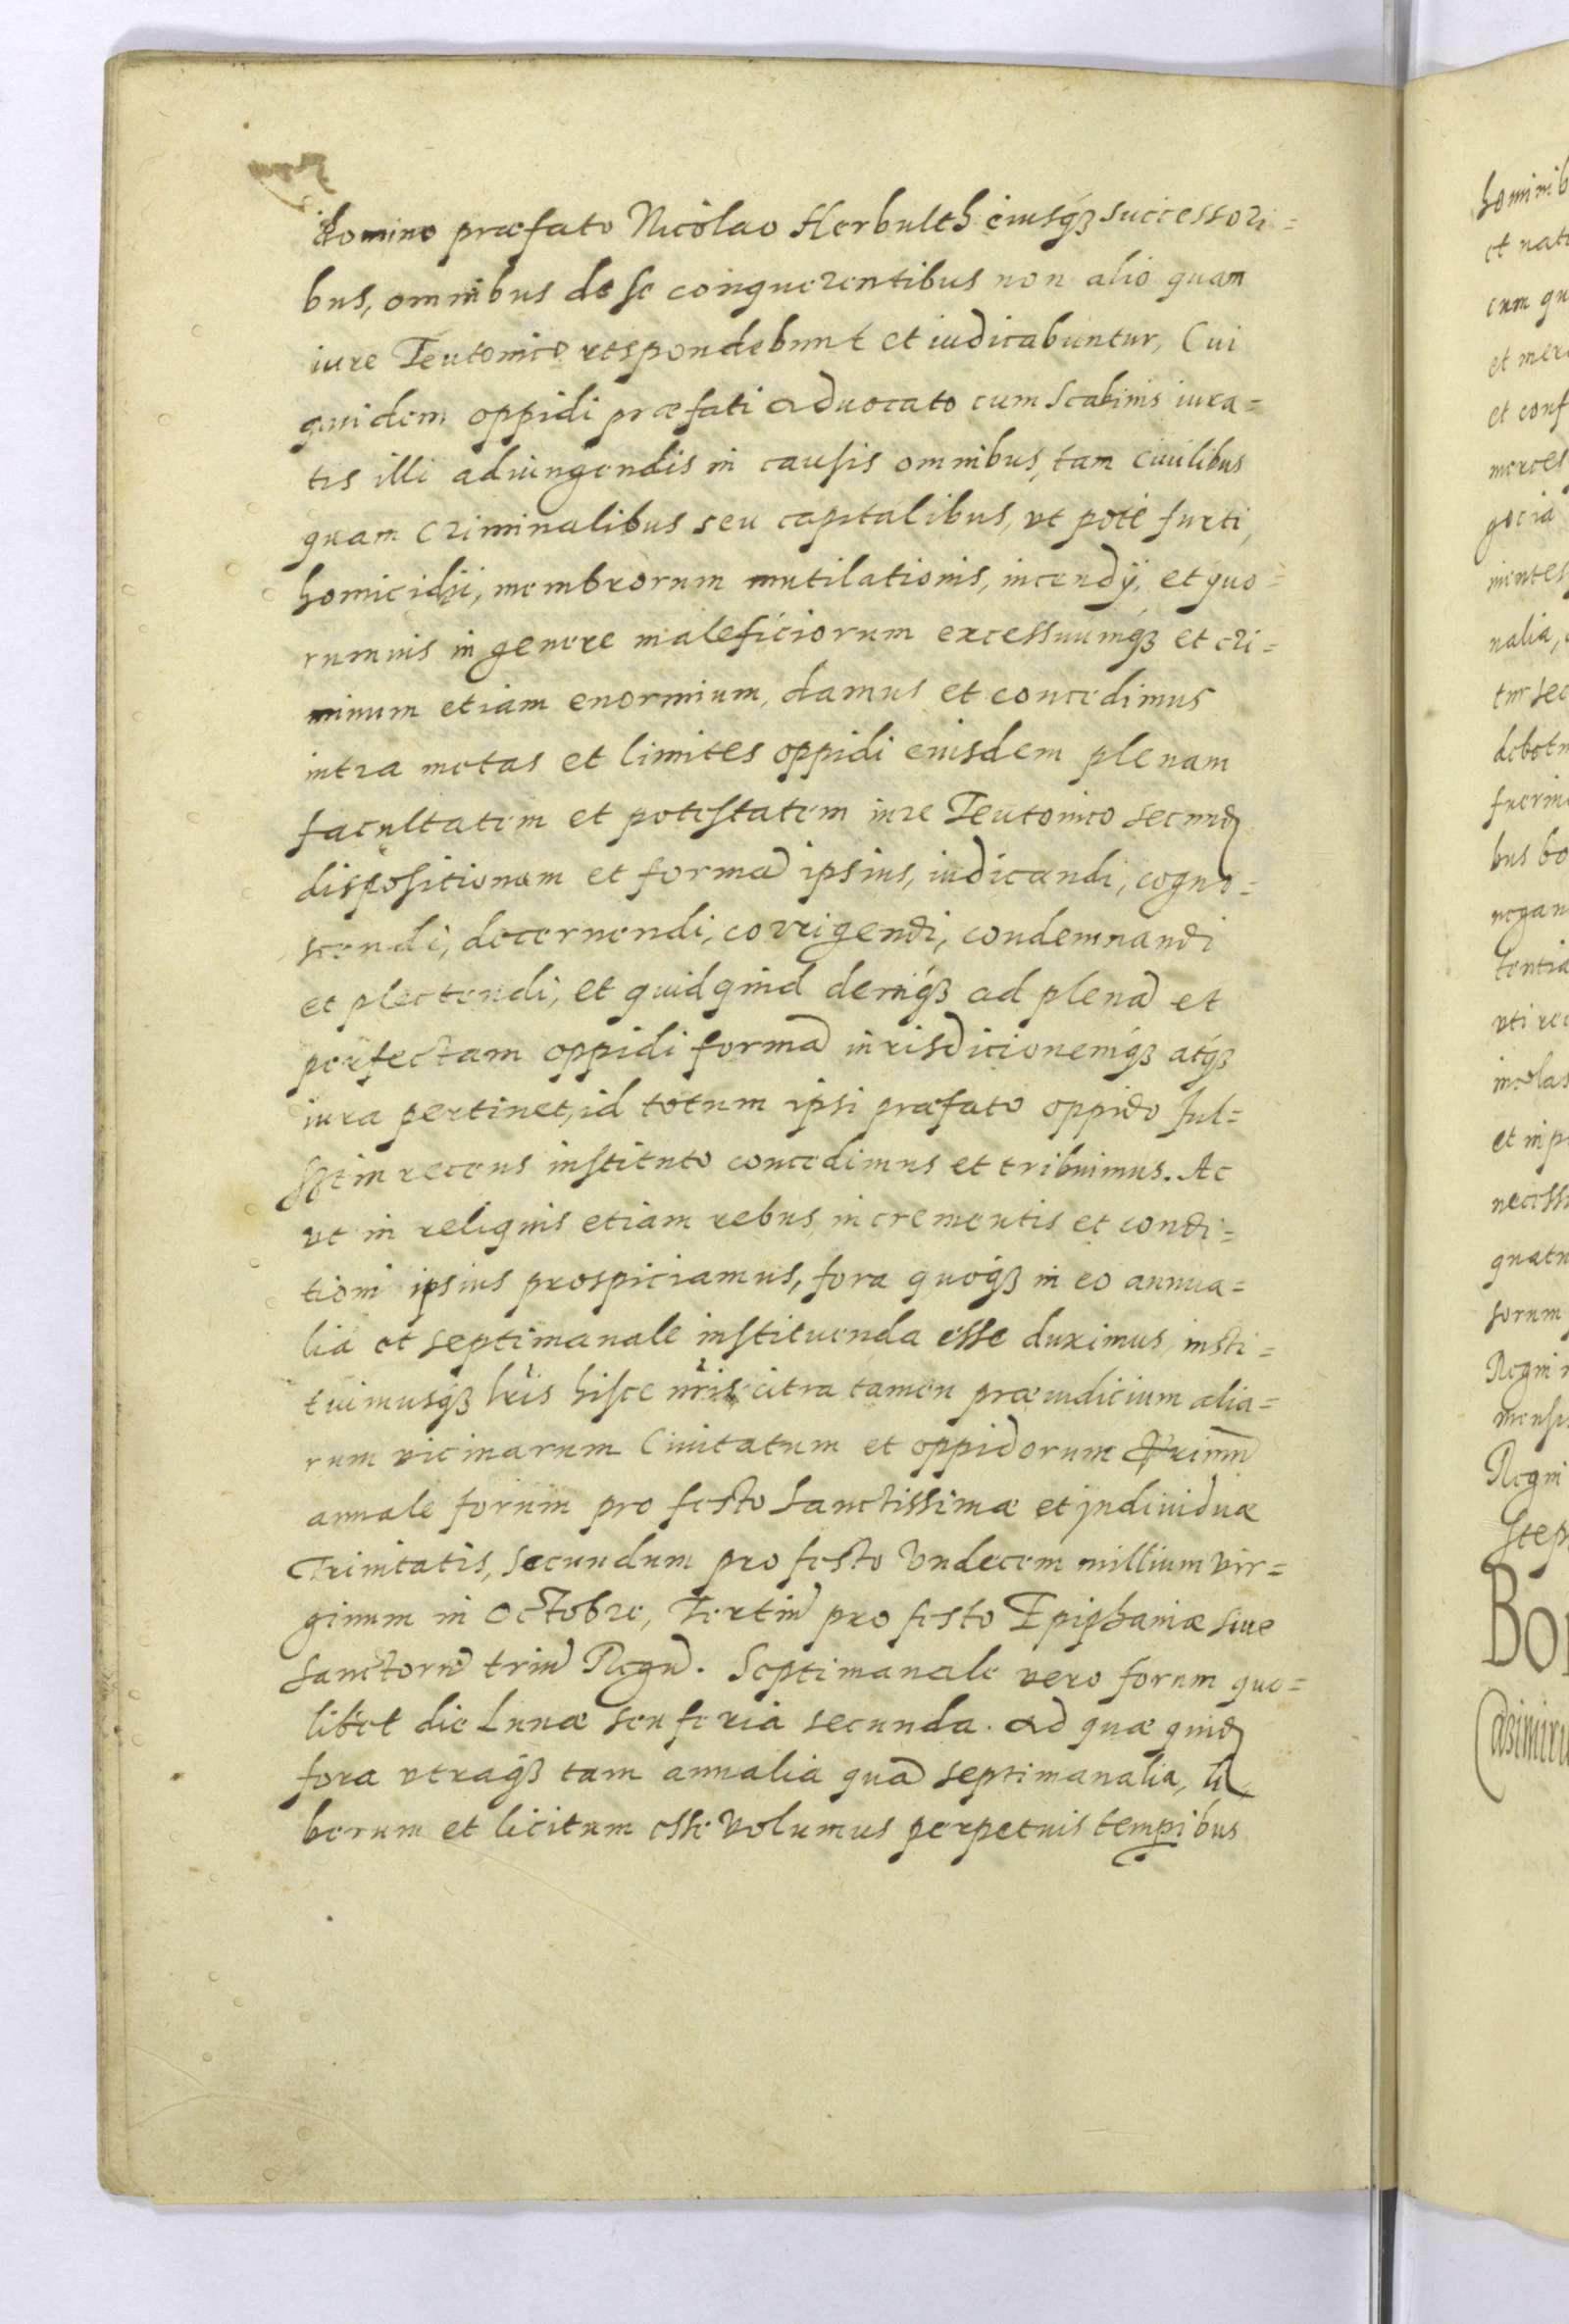 domino præfato Nicolao Herbulth eiusq₃ successori=
bus, omnibus de se conquerentibus non alio quam
iure Teutonico respondebunt et iudicabuntur, Cui
quidem oppidi præfati aduocato cum Scabinis iura=
tis illi adiungendis in causis omnibus, tam ciuilibus
quam Criminalibus seu capitalibus, vt pote furti,
homicidii, membrorum mutilationis, incendÿ, et quo=
rumuis in genere maleficiorum excessuumq₃ et cri=
minum etiam enormium, damus et concedimus
intra metas et limites oppidi eiusdem plenam
facultatem et potestatem iure Teutonico secund
dispositionem et formā ipsius, iudicandi, cogno=
scendi, decernendi, corrigendi, condemnandi
et plectendi, et quidquid deniq₃ ad plenā et
perfectam oppidi formā iurisdicionemq₃ atq₃
iura pertinet, id totum ipsi præfato oppido Ful=
sztin recens instituto concedimus et tribuimus. Ac
vt in reliquis etiam rebus, incrementis et condi=
tioni ipsius prospiciamus, fora quoq₃ in eo annua=
lia et septimanale instituenda esse duximus, insti=
tuimusq₃ lr̄is hisce nr̄is citra tamen præiudicium alia=
rum vicinarum Ciuitatum et oppidorum Primū
annale forum pro festo Sanctissimæ et jndiuiduæ
Trinitatis, Secundum pro festo Vndecem millium vir=
ginum in Octobre, Tertiū pro festo Epiphaniæ siue
Sanctorū triū Regū. Septimanale vero forum quo=
libet die Lunæ seu feria secunda. Ad quæ quid
fora vtraq₃ tam annalia quā septimanalia, li
berum et licitum esse Volumus perpetuis tempibus
hominib
et nat
cum qu
et mer
et conf
merces
gocia
nalia,
tur sec
fuerin
bus bo
negan
tentia
vti rec
incolas
et in p
necess
quatu
sorum
Regni
mensi
Regni
Step
Bor
Casimiru